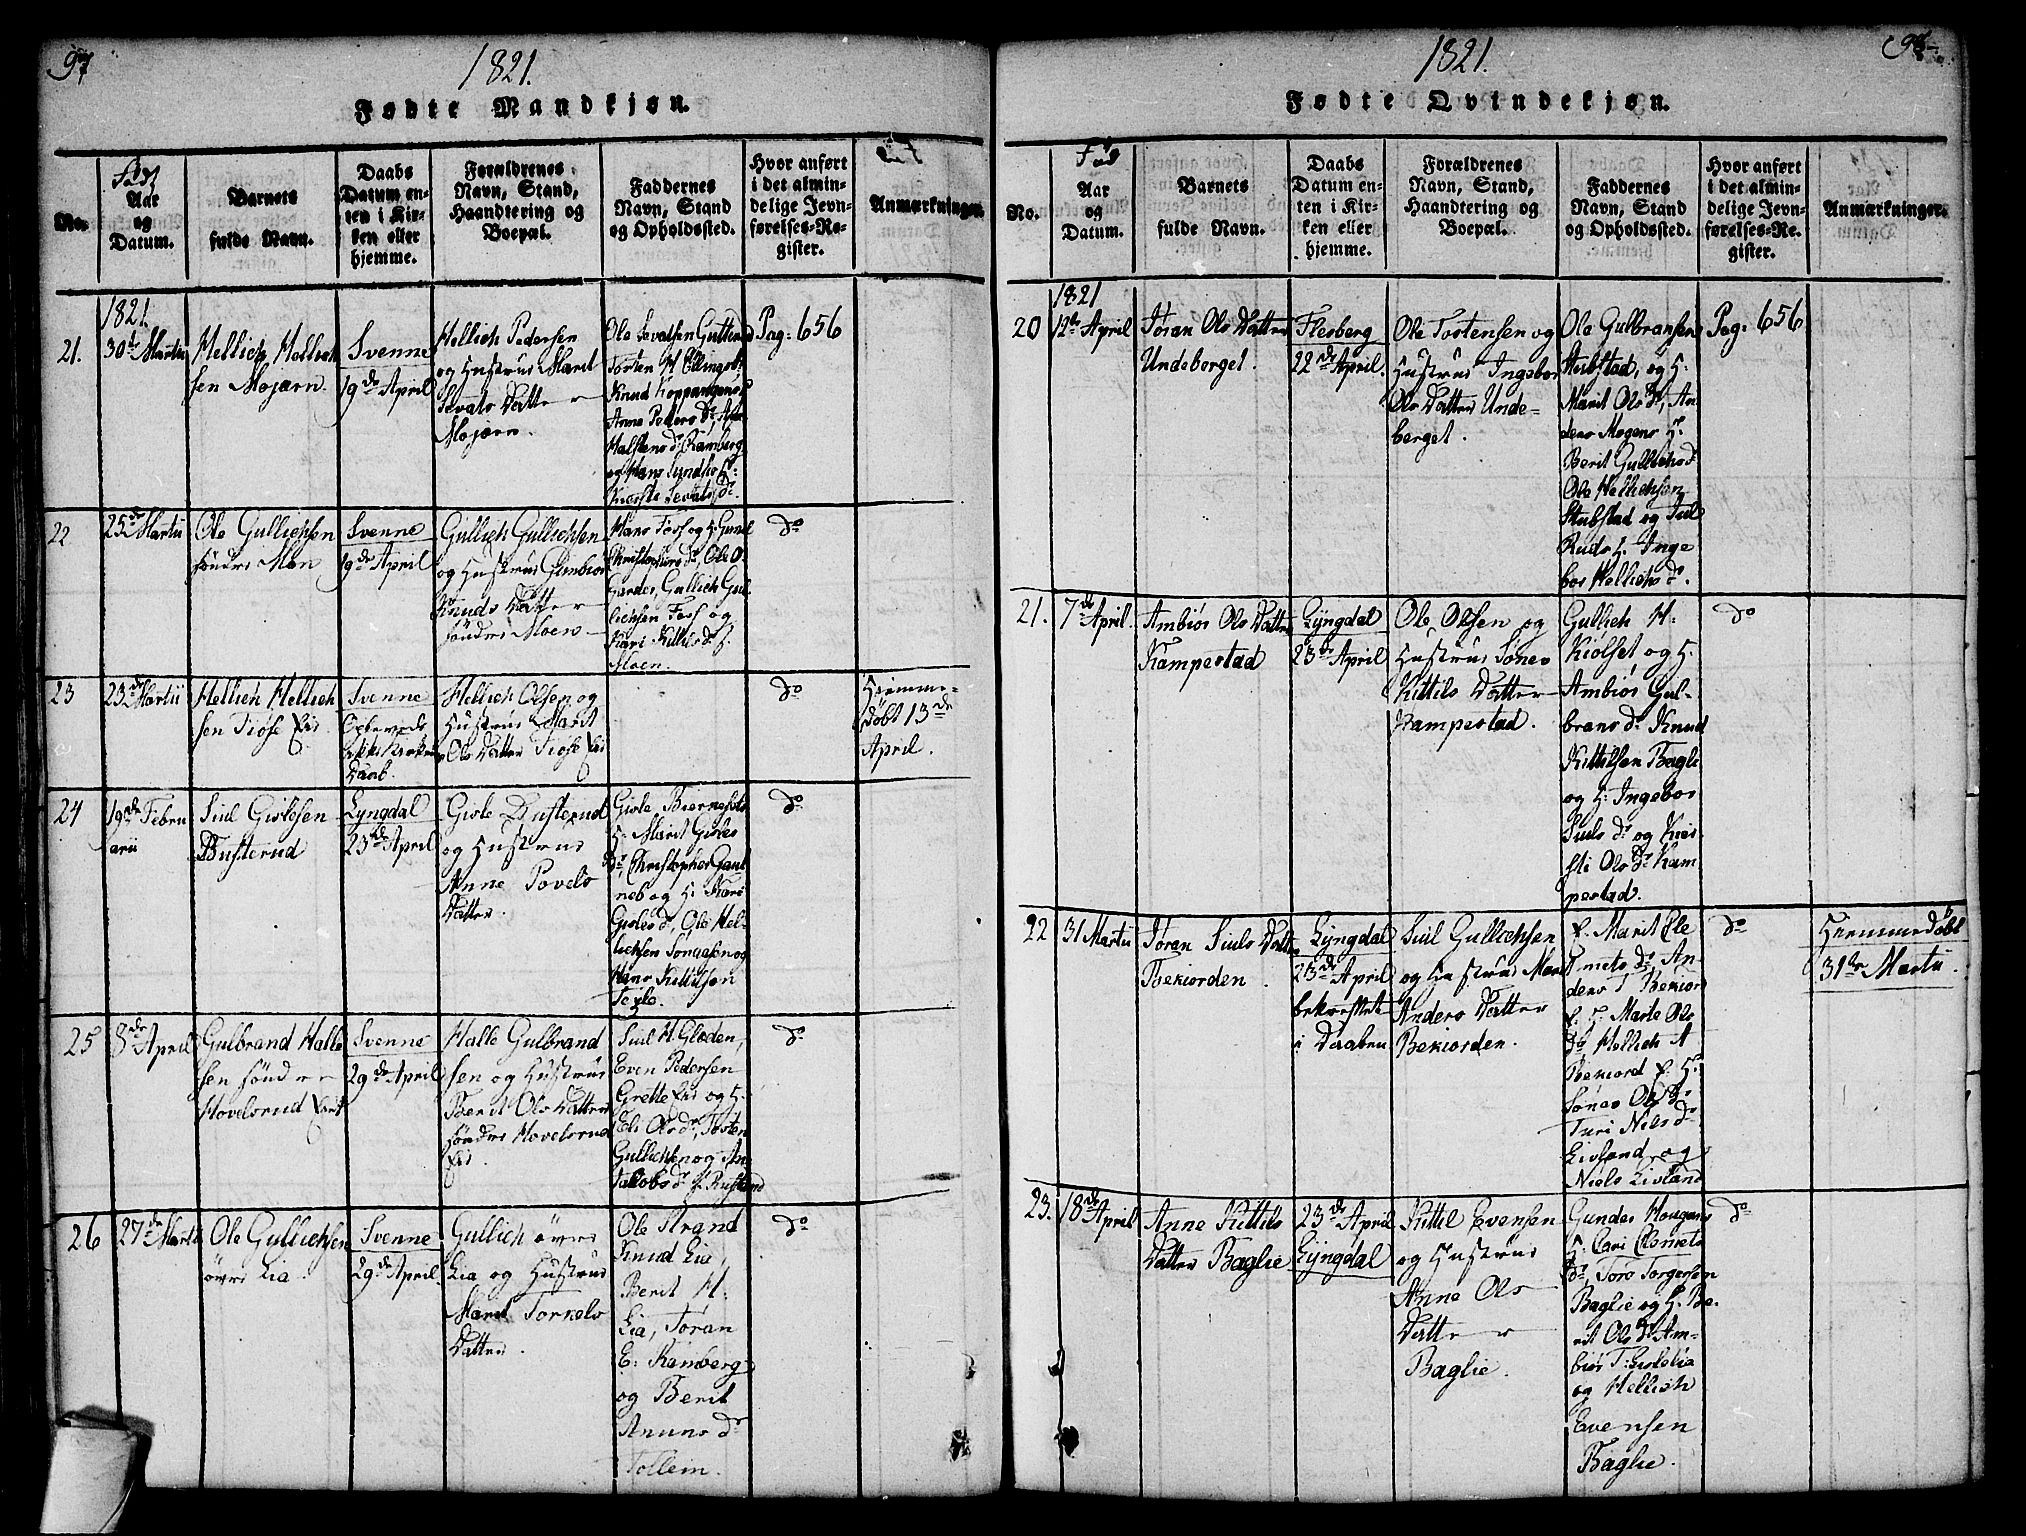 97
1821.
Fødte Mandkjøn.
No.
Fød
Aar
og
Datum.
Barnets
fulde Navn.
Daabs
Datum en-
ten i Kir-
ken eller
hjemme.
Forældrenes
Navn, Stand,
Haandtering og
Boepæl.
Faddernes
Navn, Stand
og Opholdssted.
Hvor anført
i det almin-
delige Jevn-
førelses-Re-
gister.
Anmærkninger.
21.
1821.
30te Martii
Hellich Hellich
sen Mojærn.
Svenne
19de April
Hellich Pedersen
og Hustrue Marit
Sevats Datter
Mojærn.
Ole Sevatsen
Torsten H
Knud
Anne Peders Dr
Halstens dr Ramberg
og Hans
Kiersti Sevats dr.
Pag: 656
22
25de Martii
Ole Gullichsen
søndre Moen
Svenne
19de April
Gullich Gullichsen
og Hustrue Gunbior
Knuds Datter
søndre Moen
Hans Foss og H. Gunil
Christophers dr, Ole O.
Gardes, Gullich Gul-
lichsen Foss og
Kari Kittils dr
Moen.
do
23
23de Martii
Hellich Hellich
sen Fiøse Eie.
Svenne
Daab.
Hellich Olsen og
Hustrue Marit
Ols Datter Fiøse Eie
do
Hiemme-
døbt 13de
April.
24
19de Febru
arii
Siul Gislesen
Busterud
Lyngdal
23de April
Gisle Busterud
og Hustrue
Anne Povels
Datter.
Gisle
H. Marit Gisles
Dr, Christopher
neb og H. Kari
Gisles d, Ole Hel-
lichsen
Hans Kittilsen
do
25
8de April
Gulbrand Halle
sen sønd
Hovelsrud Eie
Svenne
29de April
Halle Gulbrand
sen og Hustrue
Berit Ols Datter
søndre Hovelsrud
Eie.
Siul H. Gløden,
Even Pedersen
Grette Eie og H.
Eli Ols dr, Torsten
Gullichsen og An
Jakobs dr
do
26
27de Martii
Ole Gullichsen
øvre Lia.
Svenne
29de April
Gullich øvre
Lia og Hustrue
Marit Torkels
Datter.
Ole Strand
Knud Lia,
Berit H.
Lia, Jøran
E: Ramberg
og Berit
Anuns dr
Tollein.
do
1821.
Fødte Qvindekjøn.
No.
Fød
Aar
og
Datum.
Barnets
fulde Navn.
Daabs
Datum en-
ten i Kir-
ken eller
hjemme.
Forældrenes
Navn, Stand,
Haandtering og
Boepæl.
Faddernes
Navn, Stand
og Opholdssted.
Hvor anført
i det almin-
delige Jevn-
førelses-Re-
gister.
Anmærkninger.
20
1821
12te April
Jøran Ols Datter
Undeberget.
Flesberg
22de April.
Ole Torstensen og
Hustrue Ingebor
Ols Datter Unde-
berget.
Ole Gulbransen
Stubstad, og H.
Marit Ols dr, An-
ders Mogens H.
Berit Gullichs dr
Ole Hellichsen
Stubstad og Siul
Ruds H. Inge
bor Hellichs dr.
Pag: 656
21.
7de April.
Ambiør Ols Datter
Kampestad
Lyngdal
23de April
Ole Olsen og
Hustrue Sønev
Kittils Datter
Kampestad.
Gullich H.
Kiølset og H.
Ambiør Gul-
brans dr Knud
Kittilsen Bagli
og H: Ingebor
Siuls dr og Kier
sti Ols dr Kam
pestad.
do
22
31 Martii
Jøran Siuls Datter
Bekiorden.
Lyngdal
23de April
bekræftet
i Daaben
Siul Gullichsen
og Hustrue Marit
Anders Datter
Bekiorden.
f. Marit Cle
mets dr An
ders T Bekior
f. H. Marte Ols
Dr Hellich A
Bekiord f. H.
Sønev Ols Dr
Turi Niels dr
Livland og
Niels Livland
do
Hiemmedøbt
31te Martii.
23.
18de April
Anne Kittils
Datter Baglie
23de April
Lyngdal
Kittil Evensen
og Hustrue
Anne Ols
Datter
Baglie.
Gunder Hougens
H. Cari Clemets
Dr, Tore Torgersen
Baglie og H. Be-
rit Ols dr Am-
biør T:
og Hellich
Evensen
Baglie.
do